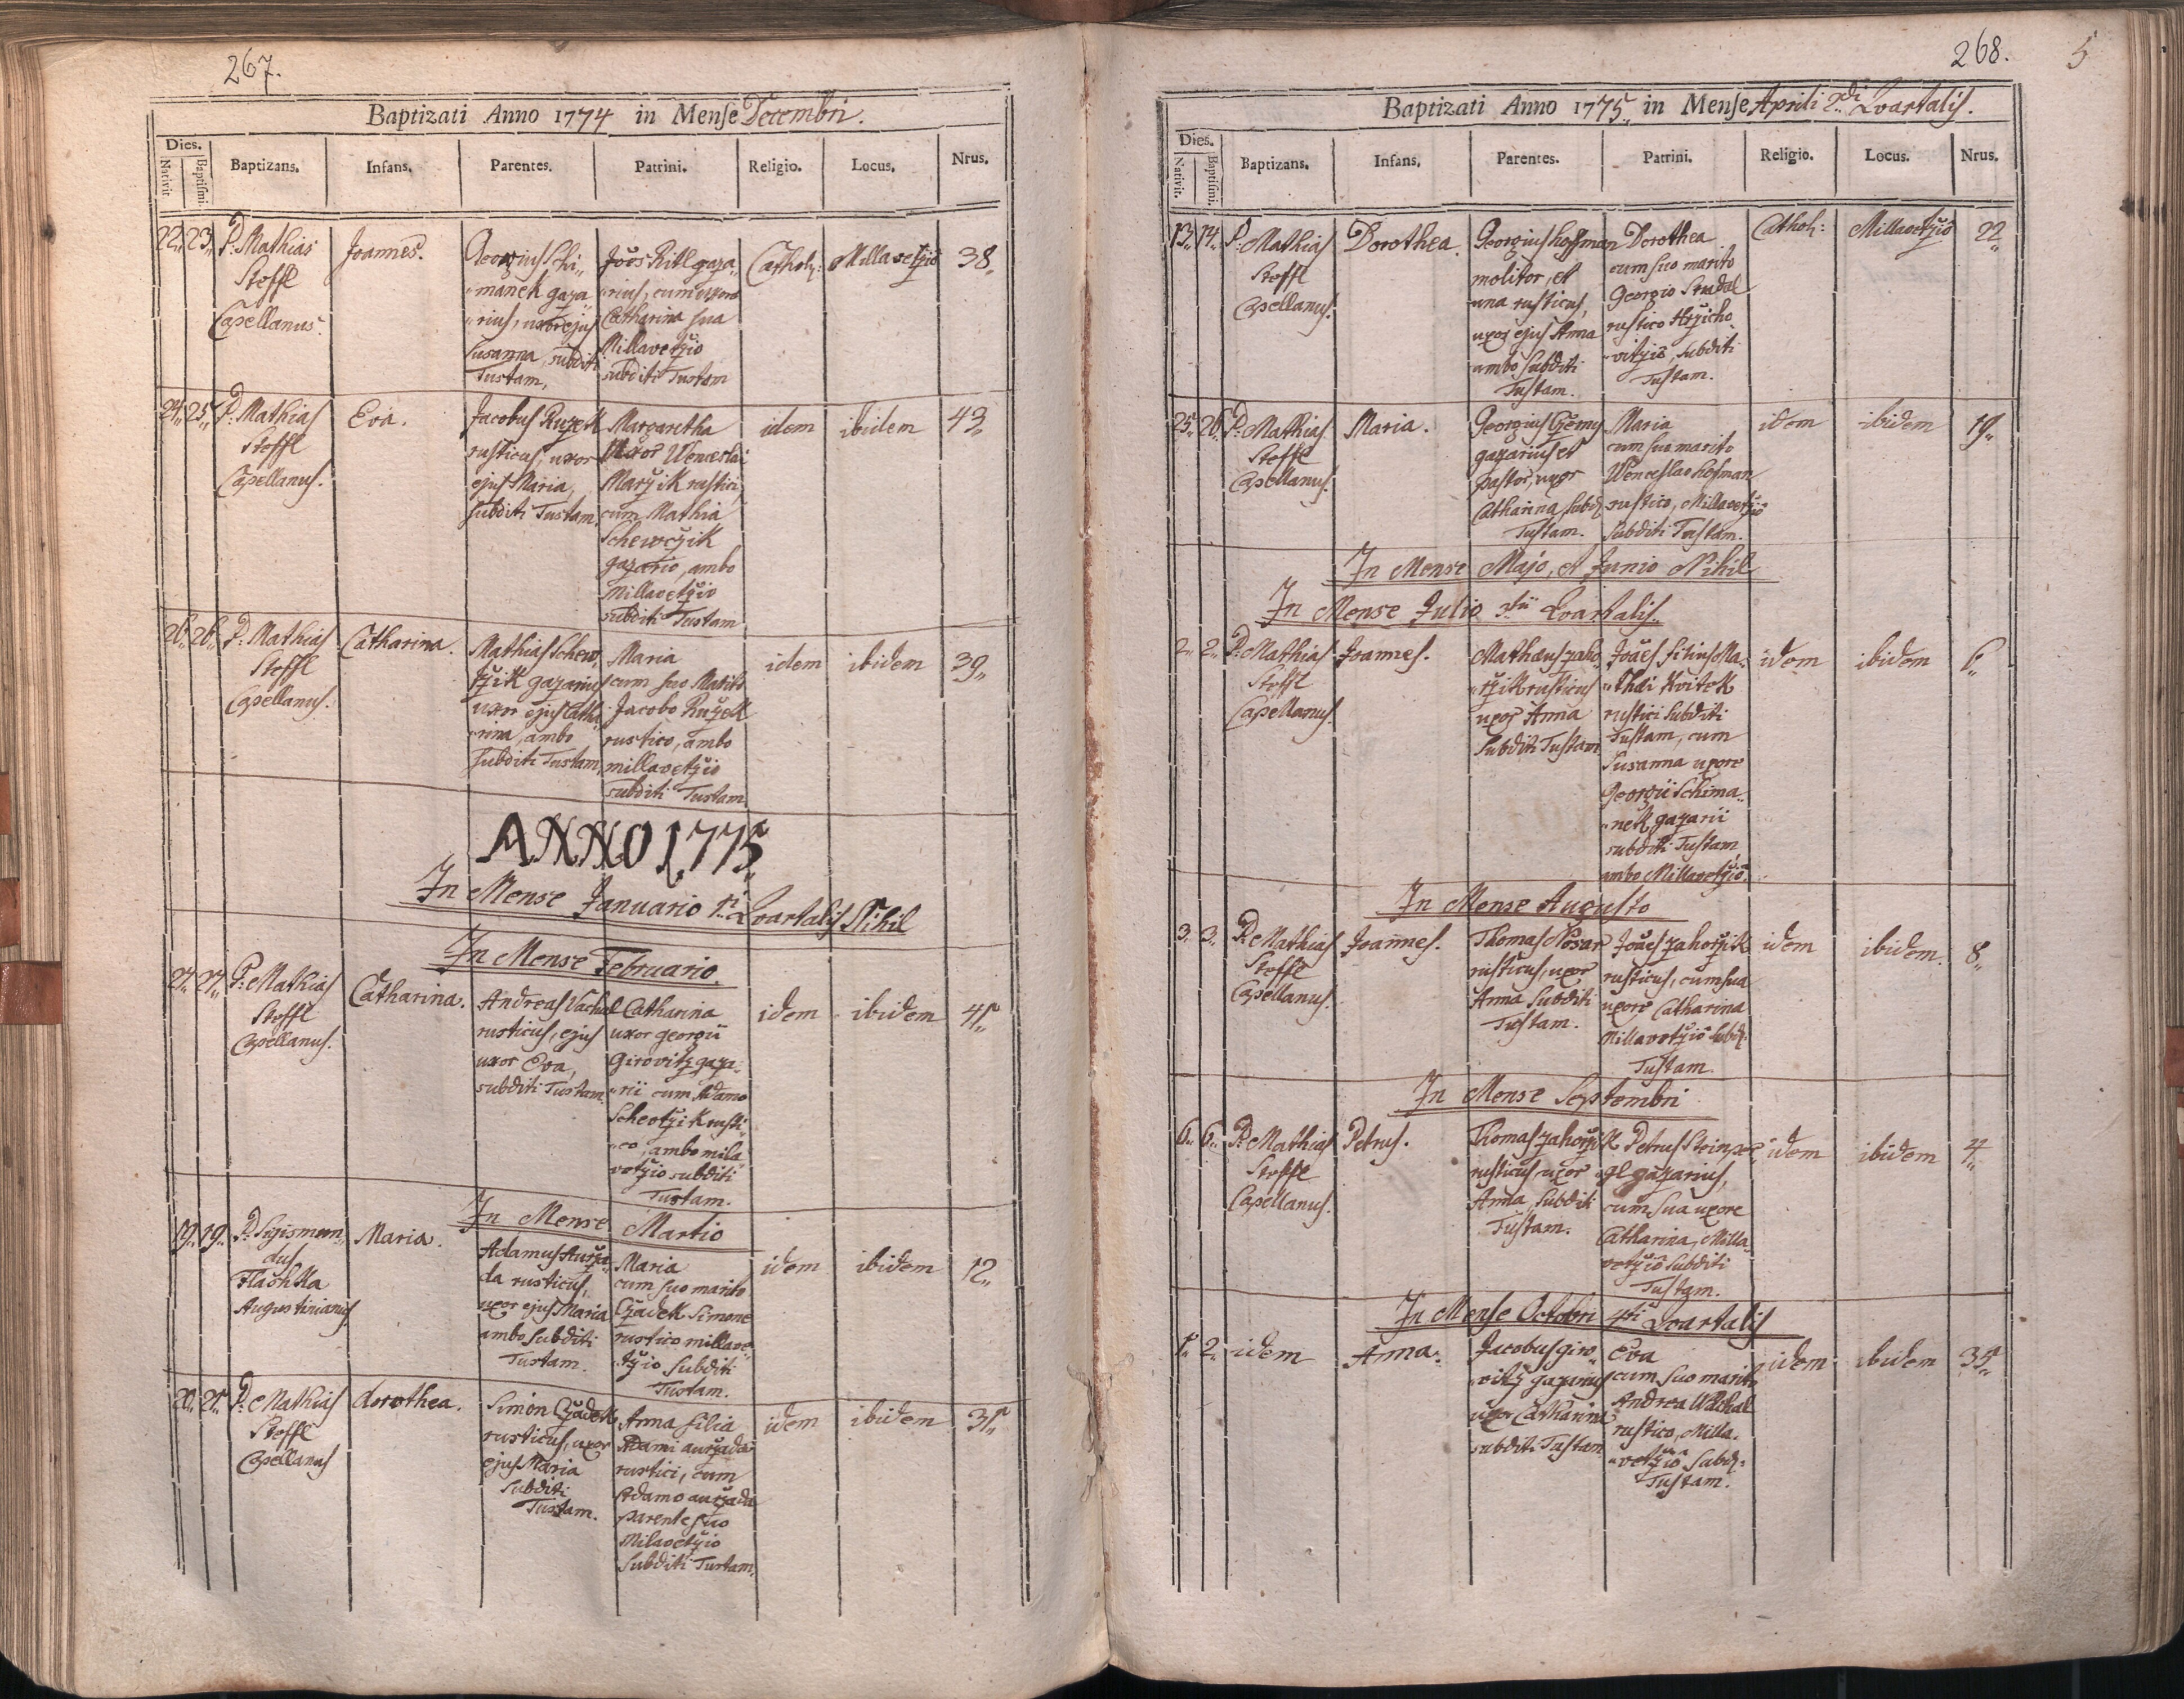 267.
Baptizati Anno 1774 in Mense Decembri.
Dies.
Nativit. Baptismi. Baptizans. Infans. Parentes. Patrini. Religio. Locus. Nrus.
22. 23. P. Mathias Joannes. Georgius Schi- Catholi: Millavetzio 38.
Steffl manek gaza- rius, cum uxore
Capellanus rius, uxor ejus Catharina sua
Susanna, subditi Millavetzio
Tustam, subditi Tustam
24. 25. P. Mathias Eva. Jacobus Ruzek Margaretha idem ibidem 43.
Steffl rusticus, uxor Uxor Wenceslai
Capellanus. ejus Maria, Marzik rustici,
subditi Tustam, cum Mathia
Schewczik
gazario, ambo
Millavetzio
subditi Tustam
26. 26. P. Mathias Catharina. Mathias Schew- Maria idem ibidem 39.
Steffl tzik gazarius cum suo Marito
Capellanus. uxor ejus Catha- Jacobo Ruzek
rina, ambo rustico, ambo
subditi Tustam, millavetzio
subditi Tustam
ANNO 1775.
In Mense Januario 1mi Quartalis Nihil
In Mense Februario.
27. 27. P. Mathias Catharina. Andreas Vachal Catharina idem ibidem 45.
Steffl rusticus, ejus uxor georgii
Capellanus. uxor Eva, Girovitz gaza-
subditi Tustam. rii cum Adamo
Schevtzik rusti-
co, ambo mila
vetzio subditi
Tustam.
In Mense Martio
19. 19. P. Sigismun- Maria. Adamus Aurza- Maria idem ibidem 12.
dus da rusticus, cum suo marito
Flachka uxor ejus Maria Czadek Simone
Augustinianus ambo subditi rustico millave-
Tustam. tzio subditi
Tustam.
20. 21. P. Mathias dorothea. Simon Czadek Anna filia idem ibidem 31.
Steffl rusticus, uxor Adami aurzada
Capellanus ejus Maria rustici, cum
Subditi Adamo aurzada
Tustam. parente suo
Milavetzio
Subditi Tustam.
268. 5
Baptizati Anno 1775. in Mense Aprili 2di Quartalis.
Dies.
Nativit. Baptismi. Baptizans. Infans. Parentes. Patrini. Religio. Locus. Nrus.
13. 14. P. Mathias Dorothea. Georgius Hoffman Dorothea Catholi: Millavetzio 22
Steffl molitor, et cum suo marito
Capellanus. una rusticus, Georgio Stradal
uxor ejus Anna rustico
ambo subditi subditi
Tustam. Tustam.
25. 26. P. Mathias Maria. Georgius Czerny Maria idem ibidem 19.
Steffl gazarius et cum suo marito
Capellanus. pastor, uxor Wenceslao Hofman
Catharina subdi. rustico, Millavetzio
Tustam. Subditi Tustam.
In Mense Majo, et Junio Nihil
In Mense Julio 3tii Quartalis.
2. 2. P. Mathias Joannes. Mathaus zaho- Joaes filius Ma- idem ibidem 6.
Steffl rzik rusticus thai Kvitek
Capellanus. uxor Anna rustici Subditi
Subditi Tustam Tustam, cum
Susanna uxore
Georgii Schima-
nek gazarii
subditi Tustam,
ambo Millavetzio.
In Mense Augusto
3. 3. P. Mathias Joannes. Thomas Nosar Joaes zahorzik idem ibidem. 8.
Steffl rusticus, uxor rusticus, cum sua
Capellanus. Anna Subditi uxore Catharina
Tustam. Millavetzio subdi.
Tustam.
In Mense Septembri
6. 6. P. Mathias Petrus. Thomas zahorzik Petrus idem ibidem 4.
Steffl rusticus, uxor gazarius,
Capellanus. Anna, Subditi cum sua uxore
Tustam. Catharina, Milla-
vetzio Subditi
Tustam.
In Mense Octobri 4ti Quartalis
1. 2. idem Anna. Jacobus giro- Eva idem ibidem 35.
vitz gazarius cum suo marito
uxor Catharina Andrea Wachal
subditi Tustam rustico, Milla-
vetzio Subdi.
Tustam.